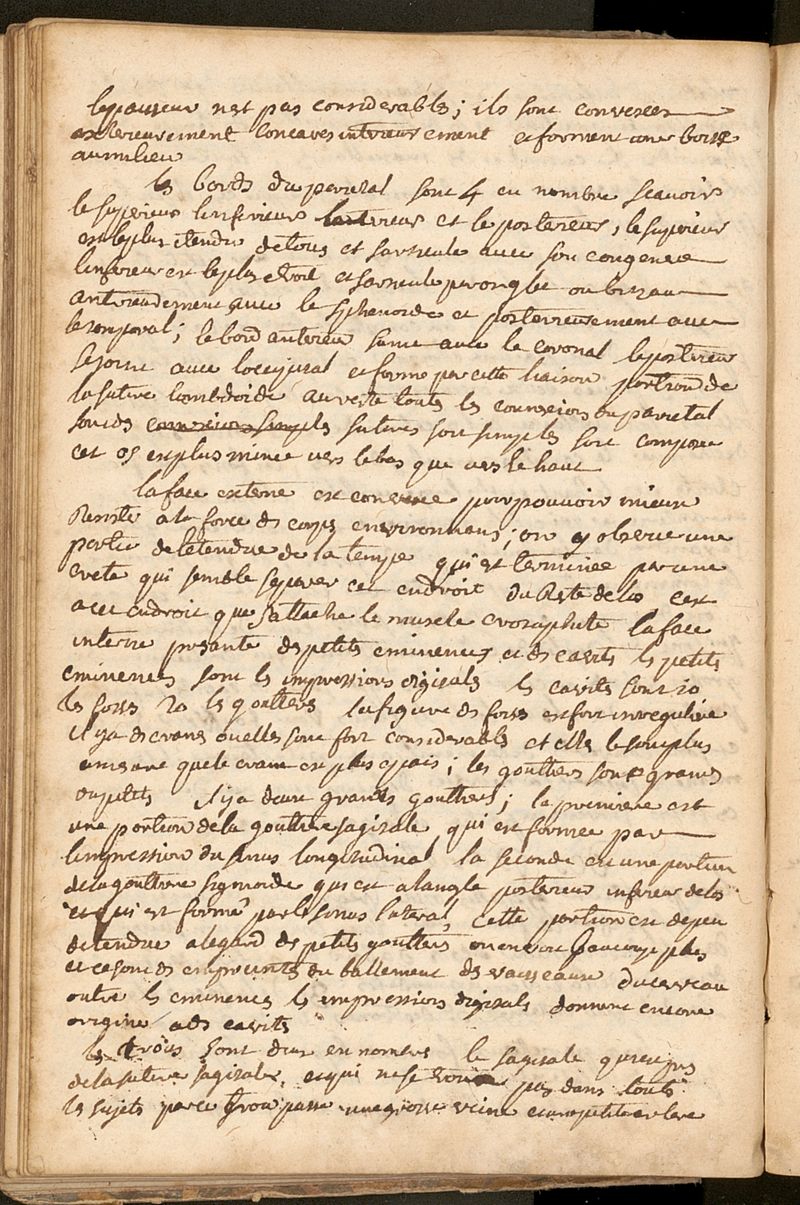 lepaisseur nest pas considerables; ils sont convexes
exterieurement concaves interieurement et forment une bosse
aumilieu
les bords du parietal sont 4 en nombre scavoir
le superieur linferieur lanterieur et le posterieur, le superieur
est leplus etendu detous et sarticule avec son congenere
linferieur est leplus etroit et sarticule par onglet ou bizeau
anterieurement avec le sphenoide et posterieurement avec
le temporal; le bord anterieur sunit avec le coronal leposterieur
sejoint avec loccipital et forme par cette liaison portion de
la suture lambdoide au reste touts les connexions du parietal
sont des connexions simples sutures sont simples sont composee
cet os est plus mince vers lebas que vers le haut
la face externe est convexe pour pouvoir mieux
Resister a la force des corps environnans; on y observe une
partie de letendue de la tempe qui est terminée par une
crete qui semble separer cet endroit du Reste de los cest
a cet endroit que sattache le muscle crotaphite la face
interne presente des petits eminences et des cavités les petits
eminences sont les impressions digitales les cavités sont 10
les fosses 20 les gouttieres la figure des fosses est fort irreguliere
il ya des cranes ou elles sont fort considerables et elles le sont plus
amesure que le crane est plus epais; les gouttieres sont grands
ou petits il ya deux grands gouttieres; la premiere est
une portion de la gouttiere sagitale qui est formée par
limpression du sinus longitudinal la seconde est une portion
de la gouttiere sigmoide qui est a langle posterieur inferieur de los
et qui est formé par le sinus lateral, cette portion est de peu
detendue a legard des petits gouttieres on en voit beaucoup plus
et ce sont des empreintes du battement des vaisseaux du cerveau
outre les eminences les impressions digitales donnent encore
origine a des cavités
les trous sont deux en nombre le sagitale qui est pres
de la suture sagitale, et qui ne se trouve pas dans touts
les sujets par ce trou passe une grosse veine et une petite artere